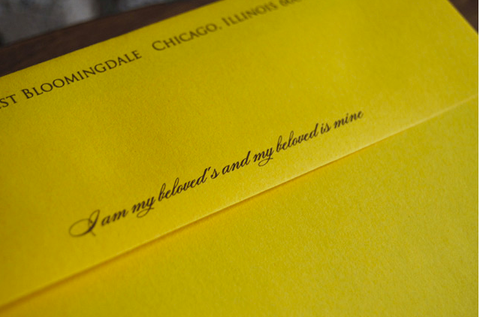 EST BLOOMINGDALE CHICAGO, ILLINOIS
I am my beloved's and my beloved is mine